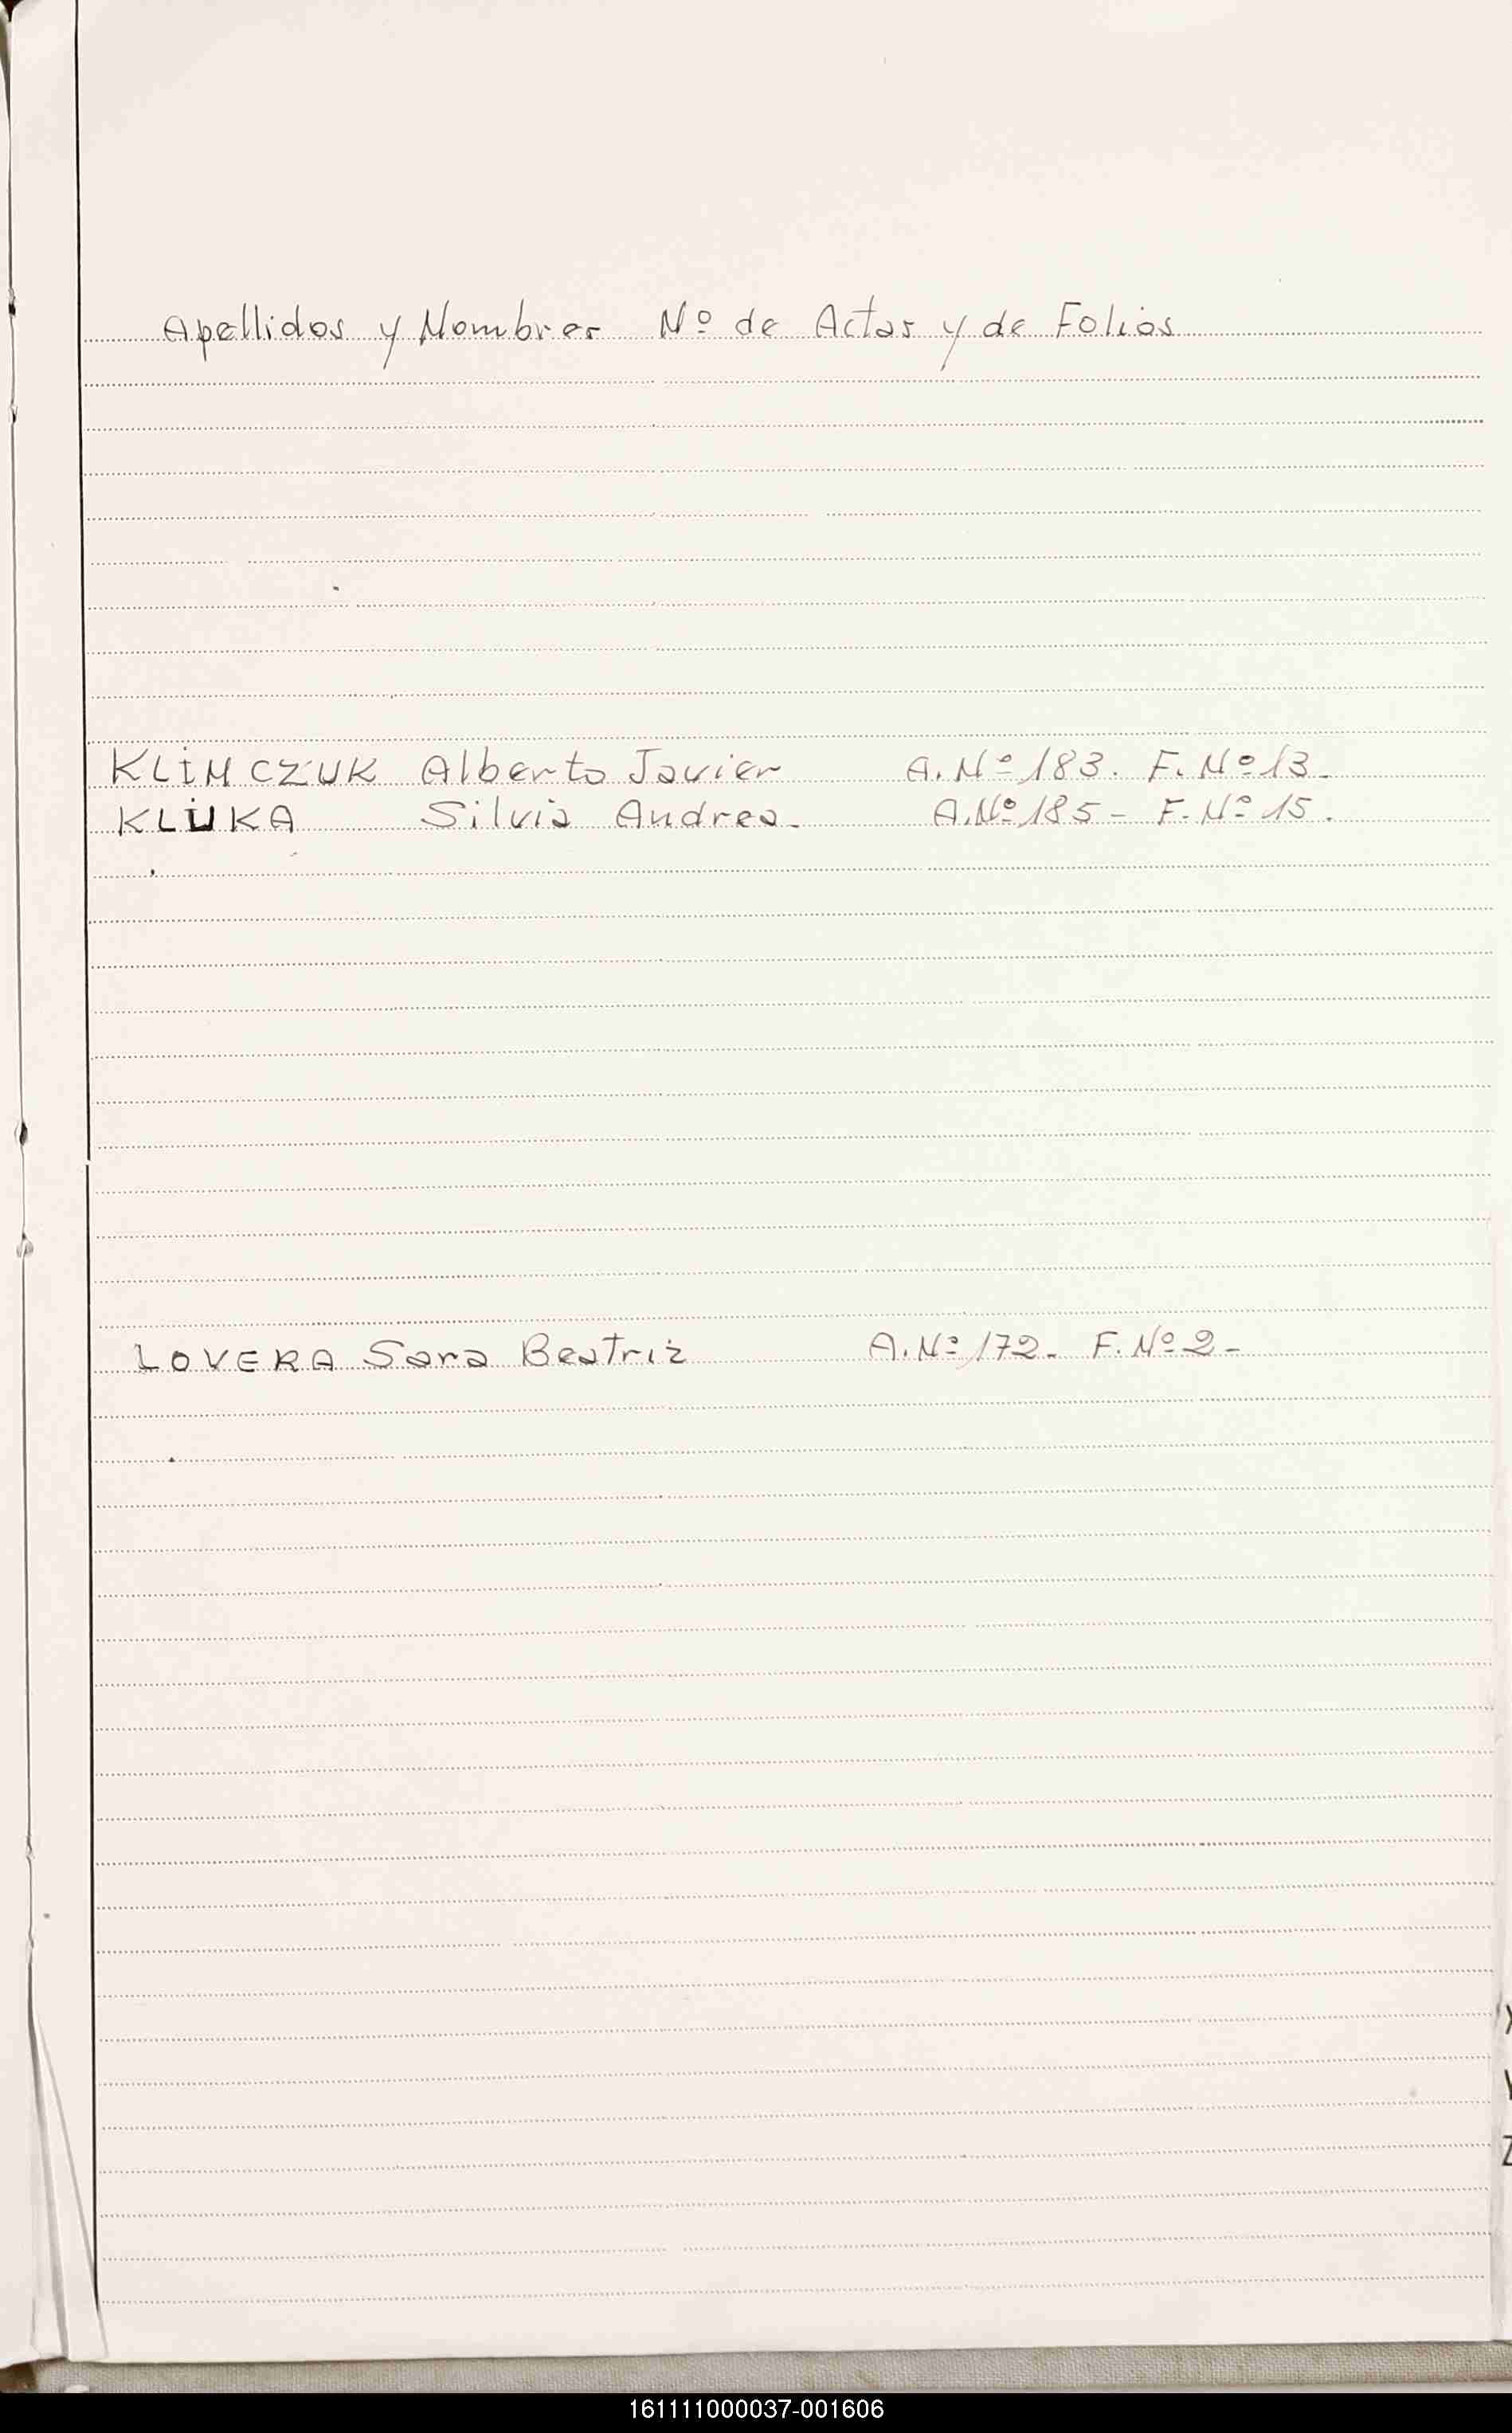 Apellidos y Nombres Nº de Actas y de Folios
KLIMCZUK Alberto Javier A. Nº 183. F. Nº 13-
Silvia Andrea- A. Nº 185 - F. Nº 15.
LOVERA Sara Beatriz A. Nº 172- F. Nº 2-
161111000037-001606